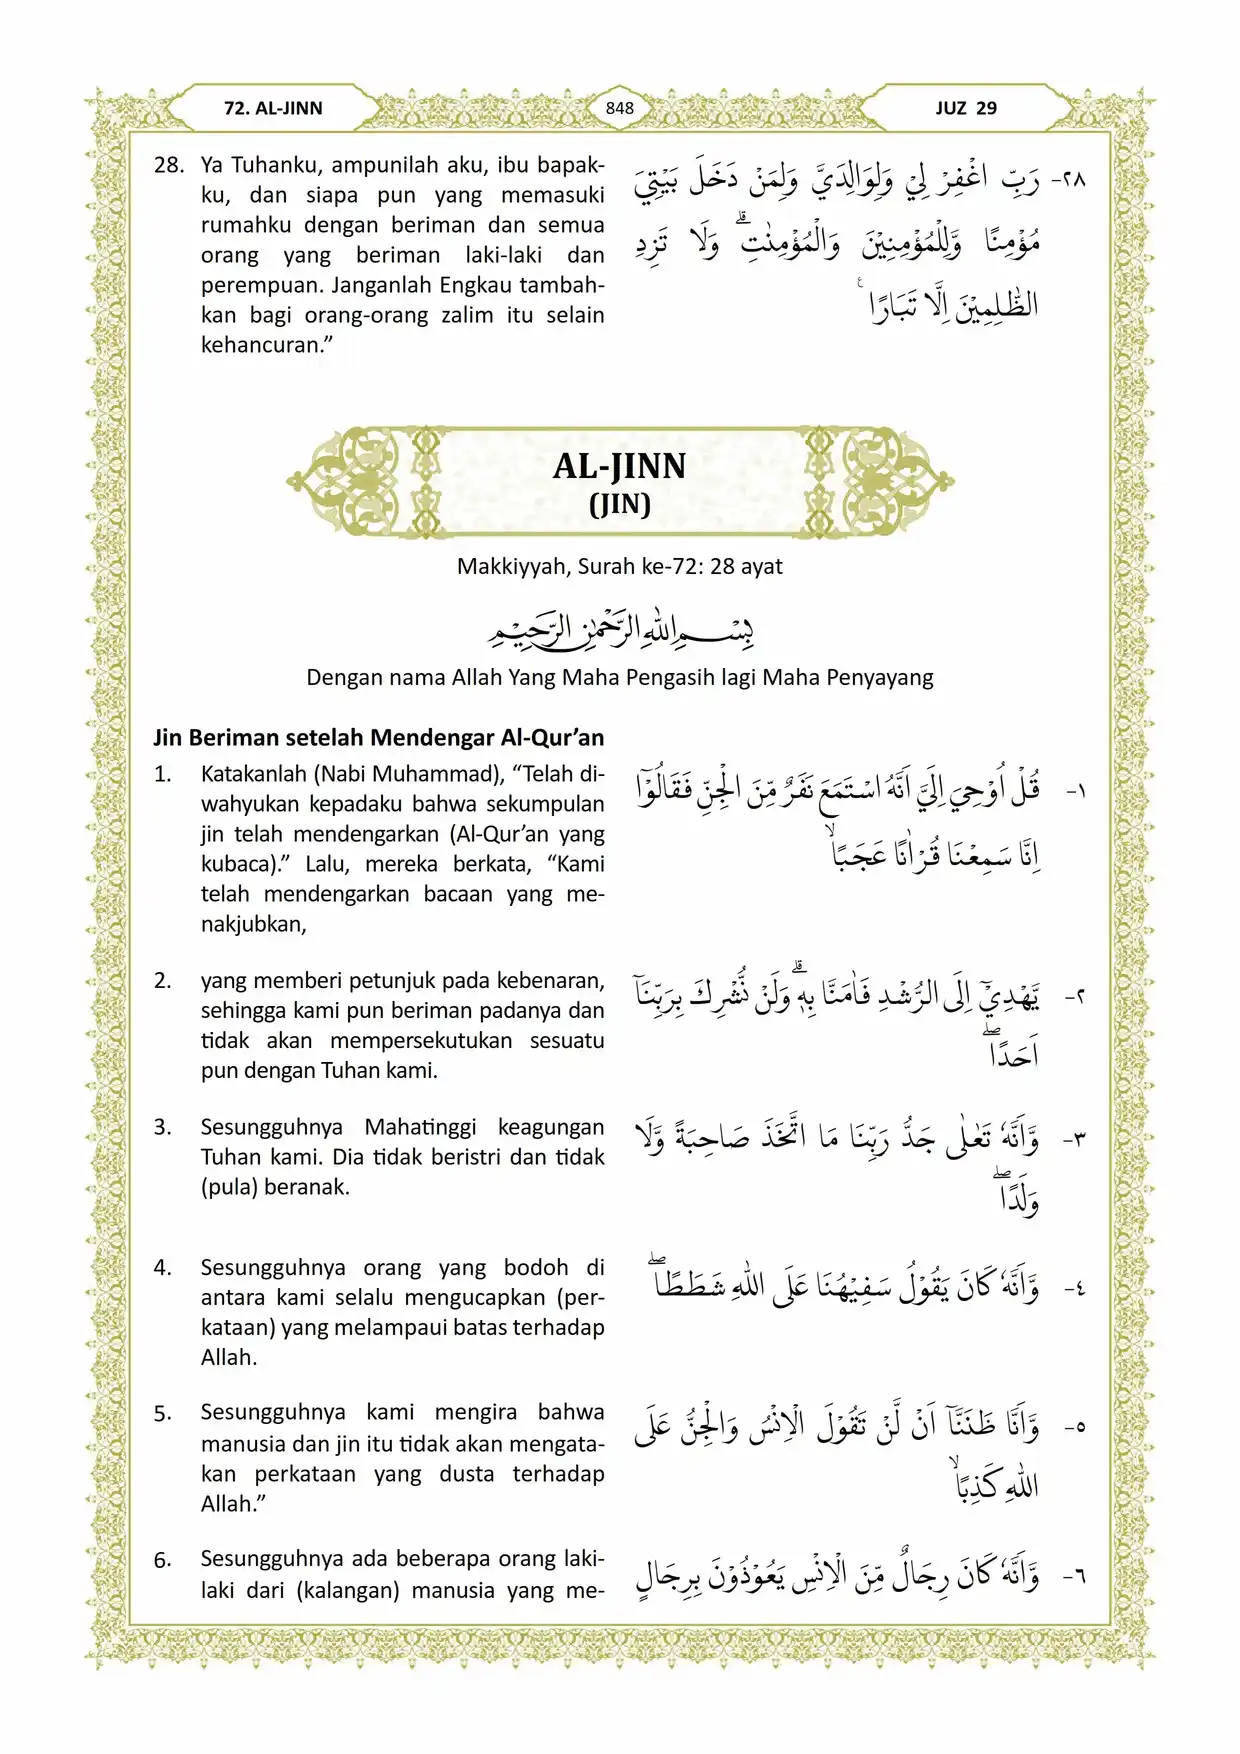 72. AL-JINN
848
JUZ 29
28. Ya Tuhanku, ampunilah aku, ibu bapak-
ku, dan siapa pun yang memasuki
rumahku dengan beriman dan semua
orang yang beriman laki-laki dan
perempuan. Janganlah Engkau tambah-
kan bagi orang-orang zalim itu selain
kehancuran.”
٢٨- رَبِّ اغْفِرْ لِيْ وَلِوَالِدَيَّ وَلِمَنْ دَخَلَ بَيْتِيَ
مُؤْمِنًا وَّلِلْمُؤْمِنِيْنَ وَالْمُؤْمِنٰتِۗ وَلَا تَزِدِ
الظّٰلِمِيْنَ اِلَّا تَبَارًا ࣖ
AL-JINN
(JIN)
Makkiyyah, Surah ke-72: 28 ayat
بِسْمِ اللّٰهِ الرَّحْمٰنِ الرَّحِيْمِ
Dengan nama Allah Yang Maha Pengasih lagi Maha Penyayang
Jin Beriman setelah Mendengar Al-Qur’an
1. Katakanlah (Nabi Muhammad), “Telah di-
wahyukan kepadaku bahwa sekumpulan
jin telah mendengarkan (Al-Qur’an yang
kubaca).” Lalu, mereka berkata, “Kami
telah mendengarkan bacaan yang me-
nakjubkan,
١- قُلْ اُوْحِيَ اِلَيَّ اَنَّهُ اسْتَمَعَ نَفَرٌ مِّنَ الْجِنِّ فَقَالُوْٓا
اِنَّا سَمِعْنَا قُرْاٰنًا عَجَبًاۙ
2. yang memberi petunjuk pada kebenaran,
sehingga kami pun beriman padanya dan
tidak akan mempersekutukan sesuatu
pun dengan Tuhan kami.
٢- يَّهْدِيْٓ اِلَى الرُّشْدِ فَاٰمَنَّا بِهٖۗ وَلَنْ نُّشْرِكَ بِرَبِّنَآ
اَحَدًاۖ
3. Sesungguhnya Mahatinggi keagungan
Tuhan kami. Dia tidak beristri dan tidak
(pula) beranak.
٣- وَّاَنَّهٗ تَعٰلٰى جَدُّ رَبِّنَا مَا اتَّخَذَ صَاحِبَةً وَّلَا
وَلَدًاۖ
4. Sesungguhnya orang yang bodoh di
antara kami selalu mengucapkan (per-
kataan) yang melampaui batas terhadap
Allah.
٤- وَّاَنَّهٗ كَانَ يَقُوْلُ سَفِيْهُنَا عَلَى اللّٰهِ شَطَطًاۖ
5. Sesungguhnya kami mengira bahwa
manusia dan jin itu tidak akan mengata-
kan perkataan yang dusta terhadap
Allah.”
٥- وَّاَنَّا ظَنَنَّآ اَنْ لَّنْ تَقُوْلَ الْاِنْسُ وَالْجِنُّ عَلَى
اللّٰهِ كَذِبًاۙ
6. Sesungguhnya ada beberapa orang laki-
laki dari (kalangan) manusia yang me-
٦- وَّاَنَّهٗ كَانَ رِجَالٌ مِّنَ الْاِنْسِ يَعُوْذُوْنَ بِرِجَالٍ